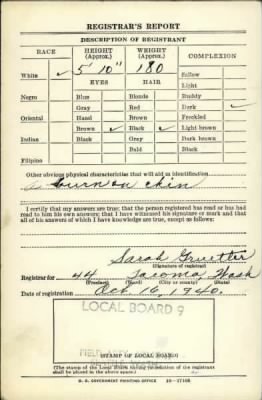 REGISTRAR'S REPORT
DESCRIPTION OF REGISTRANT
RACE HEIGHT (Approx.) WEIGHT (Approx.) COMPLEXION
White ✓ 5' 10" 180 Sallow
EYES HAIR Light
Negro Blue Blonde Ruddy
Gray Red Dark ✓
Oriental Hazel Brown Freckled
Brown ✓ Black ✓ Light brown
Indian Black Gray Dark brown
Bald Black
Filipino
Other obvious physical characteristics that will aid in identification
burn on chin
I certify that my answers are true; that the person registered has read or has had
read to him his own answers; that I have witnessed his signature or mark and that
all of his answers of which I have knowledge are true, except as follows:
Sarah Gruetter
(Signature of registrar)
Registrar for 44 Tacoma, Wash
(Precinct) (Ward) (City or county) (State)
Date of registration Oct. 16, 1940.
LOCAL BOARD 9
(STAMP OF LOCAL BOARD)
(The stamp of the Local Board having jurisdiction of the registrant
shall be placed in the above space.)
U. S. GOVERNMENT PRINTING OFFICE 16-17105